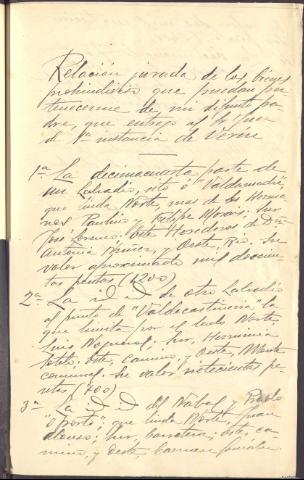 Relación jurada de los bienes
proindivisos que puedan per
tenecerme de mi difunto pa
dre, que entrego al Sr Juez
de 1ª instancia de Verín
1ª La decimacuarta parte de
un Labradío, sito ó
que linda Norte, mas de los Herma
nos Paulino y Felipe Morais; Sur,
José Lorenzo; Este Herederos de Dª
Antonia y Oeste, Río. Su
valor aproximado mil doscien
tas pesetas (1200)
2ª La id. id. de otro Labradío
al punto de "Valdecastiñeira" la
que limita por el lado Norte,
Luis Nogueirol; Sur, Herminia
Este, Camino; y Oeste, Monte
comunal. Su valor setecientas pe
setas (700)
3ª La id. id. del Nabal y Prado
"ó porto", que linda Norte Juan
Alonso; Sur, Carretera; Este, ca
mino, y Oeste, Carmen González